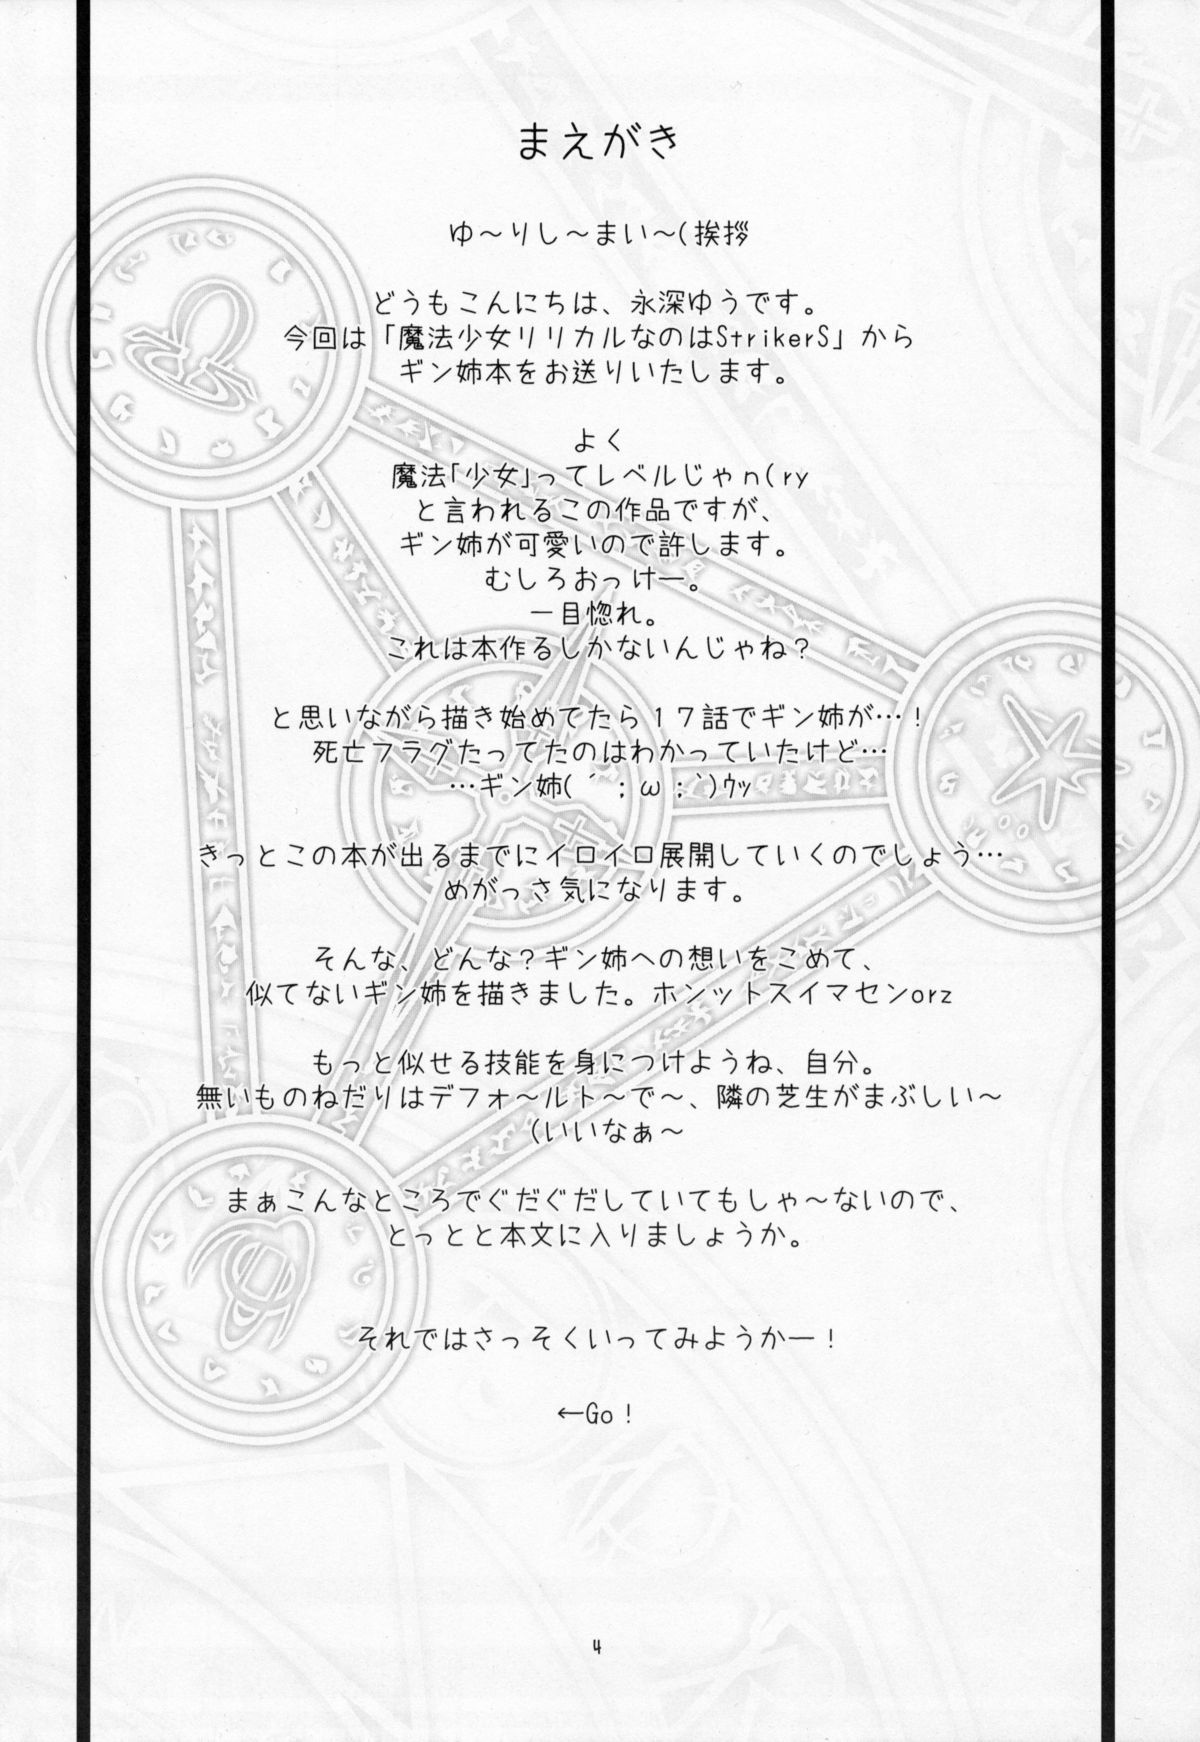 まえがき
ゆ～りし～まい～(挨拶
どうもこんにちは、永深ゆうです。
今回は「魔法少女リリカルなのはStrikerS」から
ギン姉本をお送りいたします。
よく
魔法「少女」ってレベルじゃn(ry
と言われるこの作品ですが、
ギン姉が可愛いので許します。
むしろおっけー。
一目惚れ。
これは本作るしかないんじゃね？
と思いながら描き始めてたら１７話でギン姉が…！
死亡フラグたってたのはわかっていたけど…
…ギン姉(´；ω；`)ｳｯ
きっとこの本が出るまでにイロイロ展開していくのでしょう…
めがっさ気になります。
そんな、どんな？ギン姉への想いをこめて、
似てないギン姉を描きました。ホンットスイマセンorz
もっと似せる技能を身につけようね、自分。
無いものねだりはデフォ～ルト～で～、隣の芝生がまぶしい～
(いいなぁ～
まぁこんなところでぐだぐだしていてもしゃ～ないので、
とっとと本文に入りましょうか。
それではさっそくいってみようかー！
←Go！
4